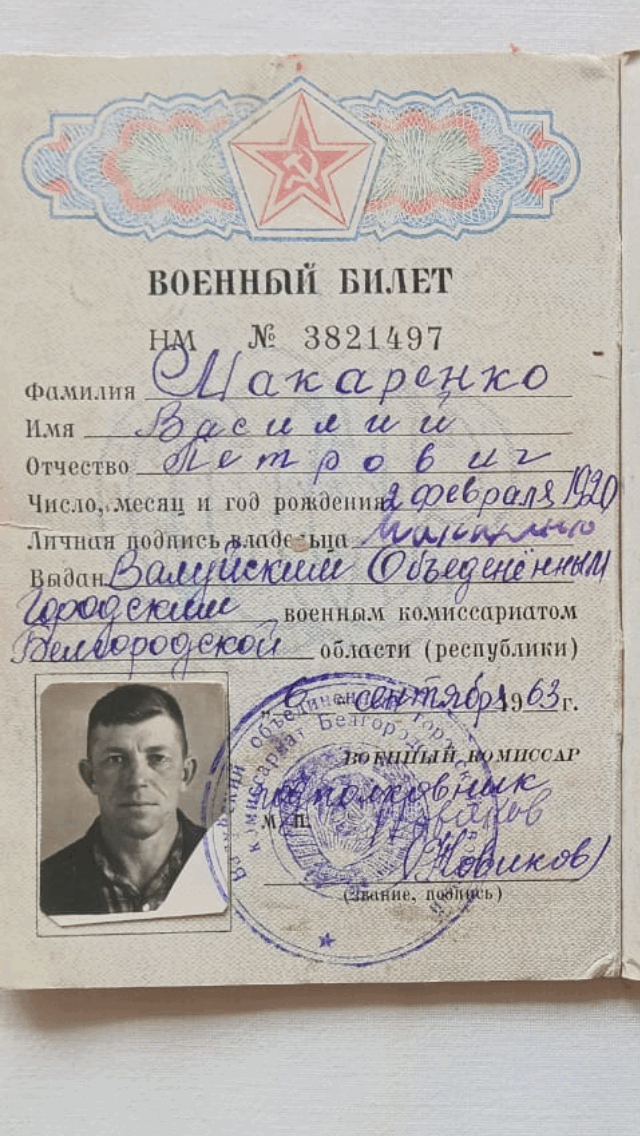 ВОЕННЫЙ БИЛЕТ
НМ № 3821497
Фамилия Макаренко
Имя Василий
Отчество Петрович
Число, месяц и год рождения 2 февраля 1920
Личная подпись владельца
Выдан Валуйский Объеденённым
Городским военным комиссариатом
Белгородской области (республики)
"6" сентября 1963 г.
ВОЕННЫЙ КОМИССАР
подполковник
М. П.
(Новиков)
(Звание, подпись)